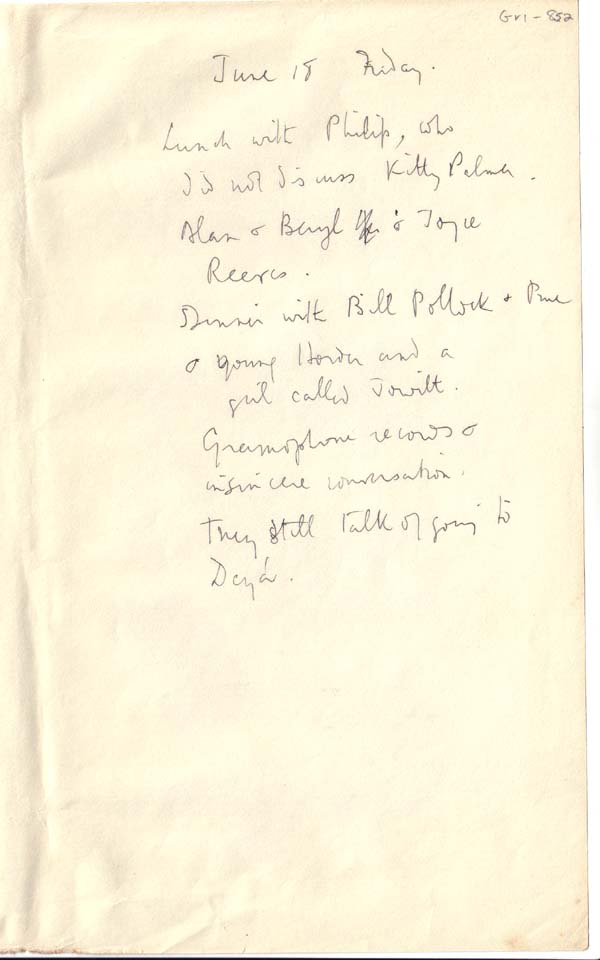 GV1-852
June 18 Friday.
Lunch with Philip, who
did not discuss Kitty Palmer.
Alan & Beryl & Joyce
Reeves.
Dinner with Bill Pollock &
& young Horder and a
girl called Jowitt.
Gramophone records &
insincere conversation.
They still talk of going to
Deyá.